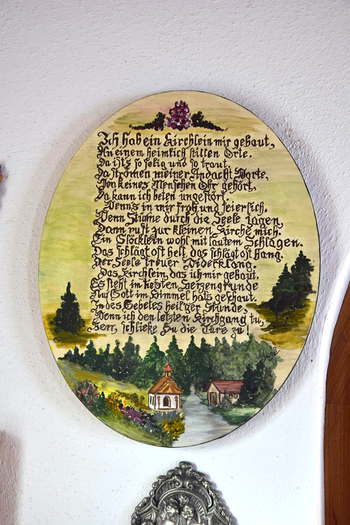 Ich hab ein Kirchlein mir gebaut,
An einem heimlich stillen Orte.
Da ist's so selig und so traut,
Da strömen meiner Andacht Worte,
Von keines Menschen Ohr gehört,
Da kann ich beten ungestört.
Wenn's in mir froh und feierlich,
Wenn Stürme durch die Seele jagen,
Dann ruft zur kleinen Kirche mich
Ein Glöcklein wohl mit lautem Schlagen.
Das schlägt oft hell, das schlägt oft bang,
Der Seele treuer Widerklang.
Das Kirchlein, das ich mir gebaut,
Es steht im tiefsten Herzensgrunde
Nur Gott im Himmel hat's geschaut.
In des Gebetes heil'ger Stunde,
Wenn ich den letzten Kirchgang tu,
Herr, schließe Du die Türe zu!